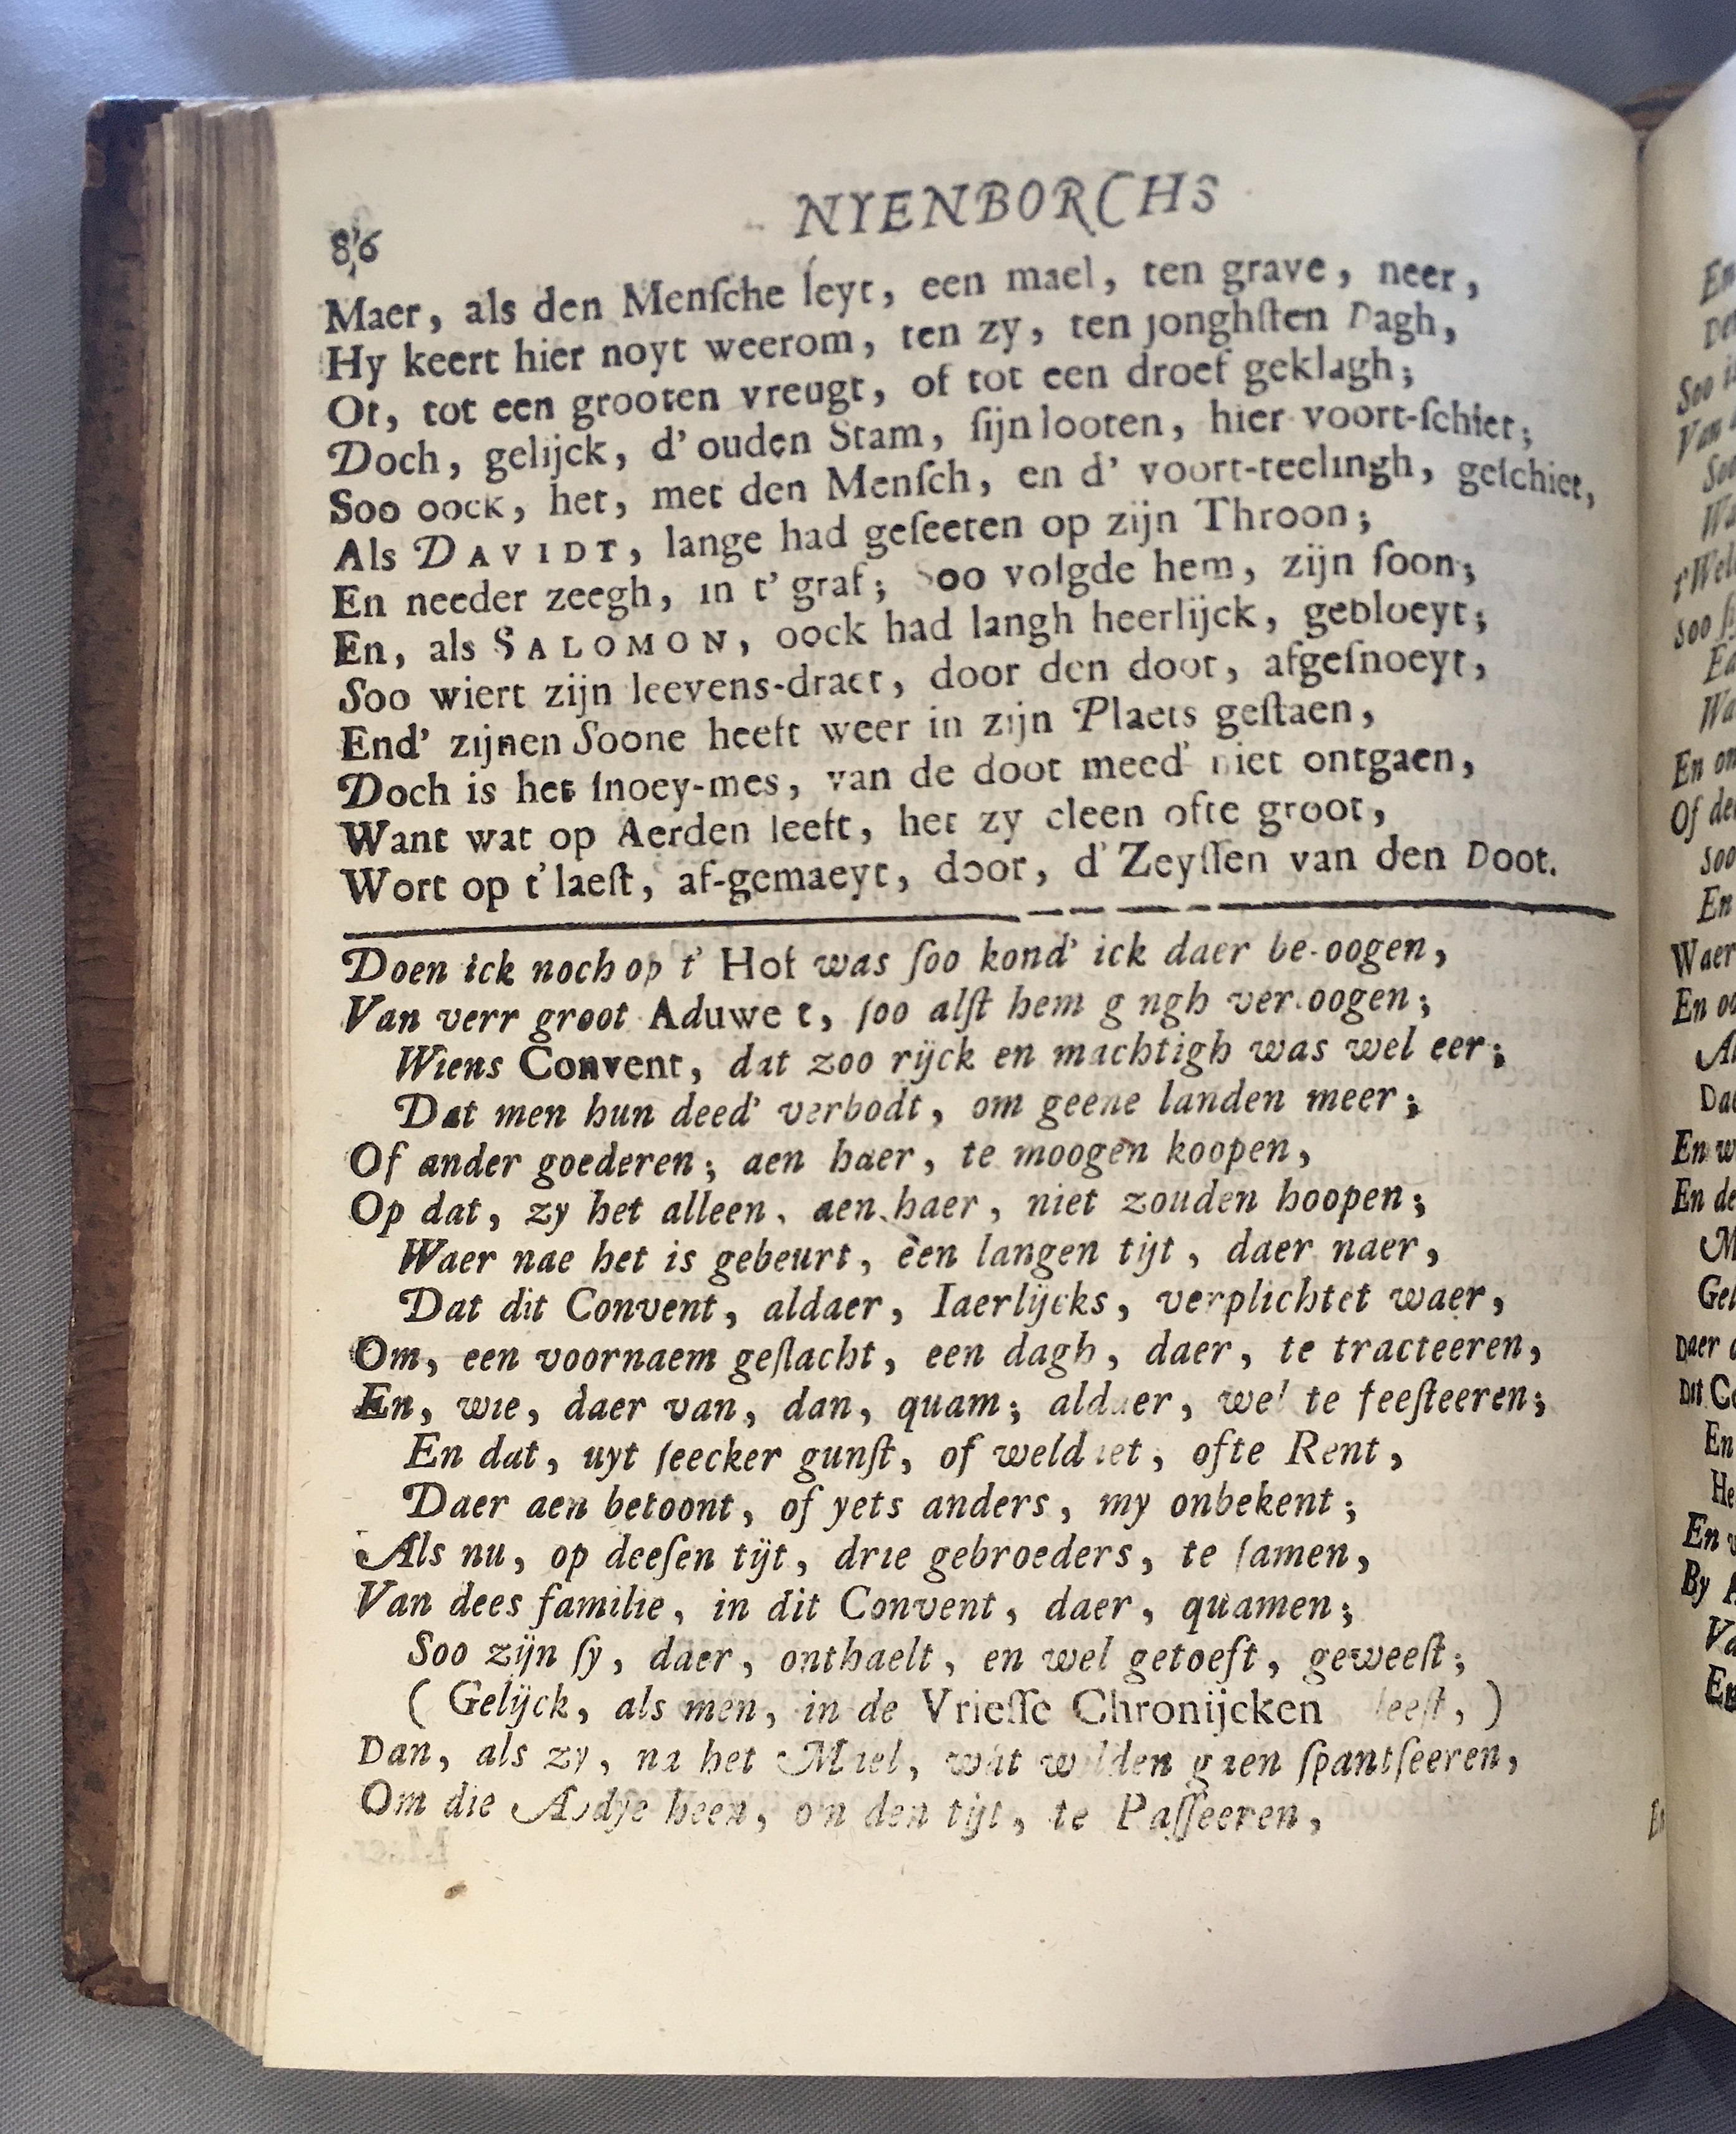 86
NYENBORCHS
Maer, als den Menſche leyt, een mael, ten grave, neer,
Hy keert hier noyt weerom, ten zy, ten jonghſten Dagh,
Of, tot een grooten vreugt, of tot een droef geklagh;
Doch, gelijck, d' ouden Stam, ſijn looten, hier voort-ſchiet;
Soo oock, het, met den Menſch, en d' voort-teelingh, geſchiet,
Als DAVIDT, lange had geſeeten op zijn Throon;
En needer zeegh, in t' graf; Soo volgde hem, zijn ſoon;
En, als SALOMON, oock had langh heerlijck, gebloeyt;
Soo wiert zijn leevens-draet, door den doot, afgeſnoeyt,
End' zijnen Soone heeft weer in zijn Plaets geſtaen,
Doch is het ſnoey-mes, van de doot meed' niet ontgaen,
Want wat op Aerden leeft, het zy cleen ofte groot,
Wort op t' laeſt, af-gemaeyt, door, d' Zeyſſen van den Doot.
Doen ick noch op t' Hof was ſoo kond' ick daer be-oogen,
Van verr groot Aduwe t, ſoo alſt hem g ngh ver oogen;
Wiens Convent, dat zoo rijck en machtigh was wel eer;
Dat men hun deed' verbodt, om geene landen meer;
Of ander goederen; aen haer, te moogen koopen,
Op dat, zy het alleen, aen haer, niet zouden hoopen;
Waer nae het is gebeurt, een langen tijt, daer naer,
Dat dit Convent, aldaer, Iaerlijcks, verplichtet waer,
Om, een voornaem geſlacht, een dagh, daer, te tracteeren,
En, wie, daer van, dan, quam; aldaer, wel te feeſteeren;
En dat, uyt ſeecker gunſt, of weldaet, ofte Rent,
Daer aen betoont, of yets anders, my onbekent;
Als nu, op deeſen tijt, drie gebroeders, te ſamen,
Van dees familie, in dit Convent, daer, quamen;
Soo zijn ſy, daer, onthaelt, en wel getoeft, geweeſt;
( Gelijck, als men, in de Vrieſſe Chronijcken leeſt, )
Dan, als zy, na het Mael, wat wilden gaen ſpantſeeren,
Om die Abdye heen, om den tijt, te Paſſeeren,